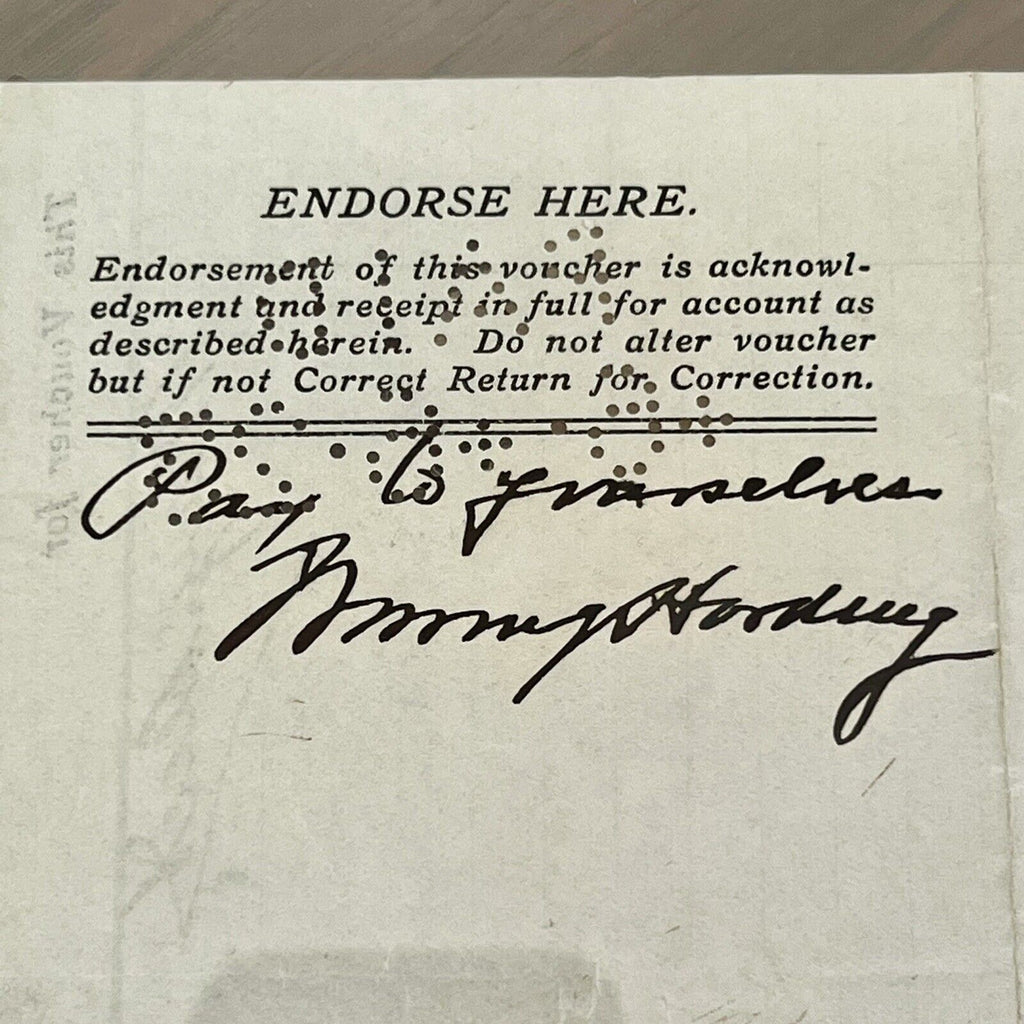 ENDORSE HERE.
Endorsement of this voucher is acknowl-
edgment and receipt in full for account as
described herein. Do not alter voucher
but if not Correct Return for Correction.
Pay to yourselves
Harding
This Voucher for